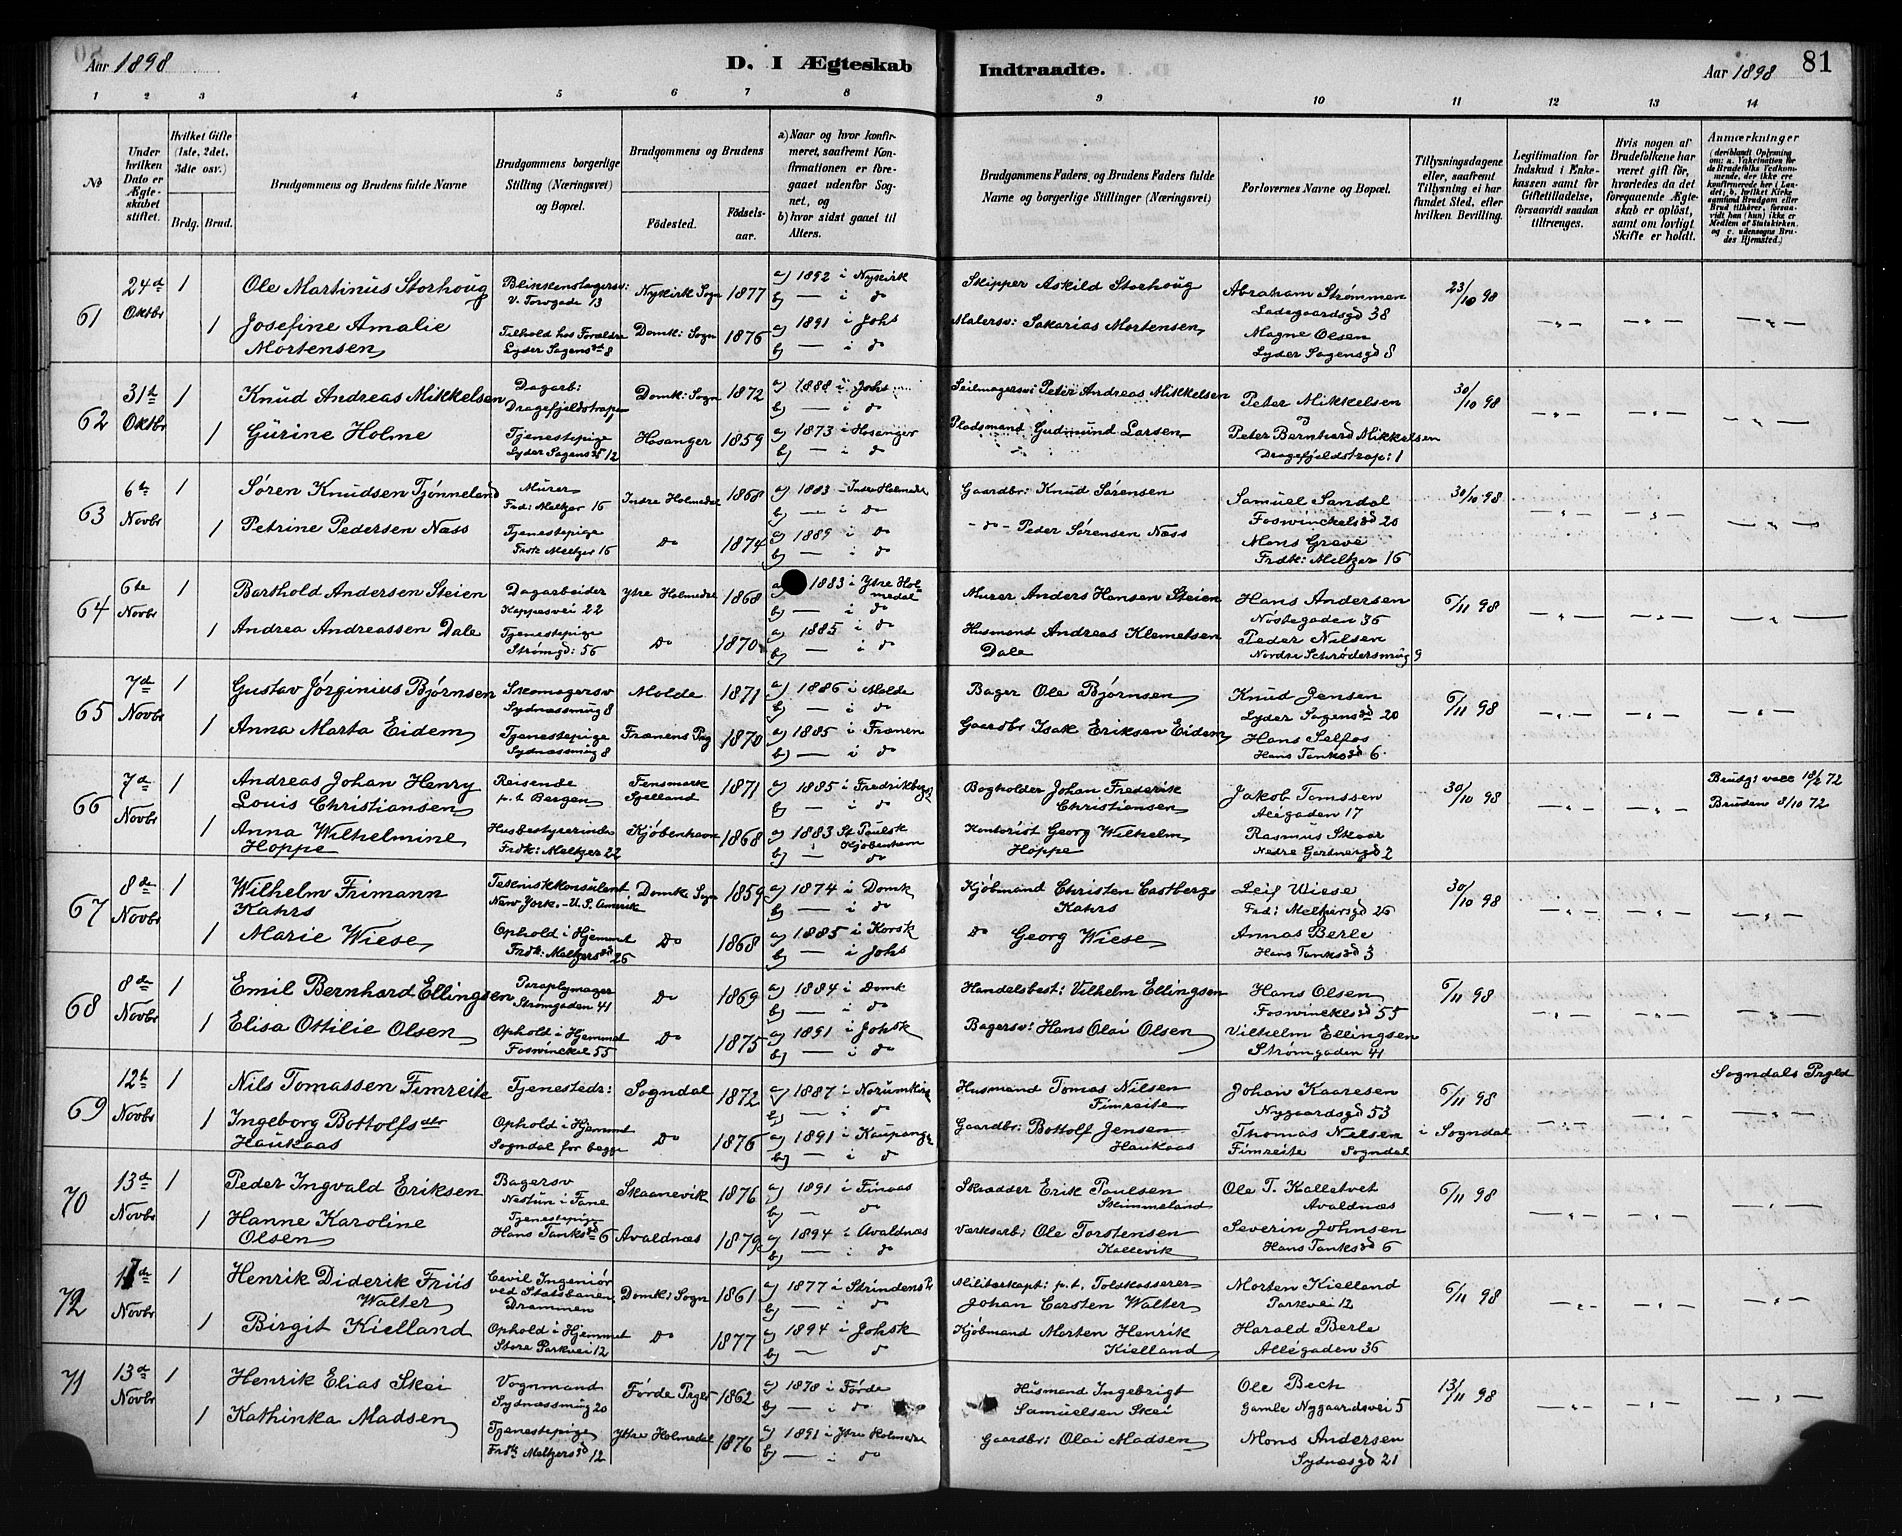 Aar 1898
D. I Ægteskab
Indtraadte.
Aar 1898
81
1 2 3 4 5 6 7 8 9 10 11 12 13 14
No
Under hvilken Dato er Ægteskabet stiftet.
Hvilket Gifte (1ste, 2det, 3dte osv.)
Brdg. Brud.
Brudgommens og Brudens fulde Navne
Brudgommens borgerlige Stilling (Næringsvei) og Bopæl.
Brudgommens og Brudens
Fødested.
Fødselsaar.
a) Naar og hvor konfirmeret, saafremt Konfirmationen er foregaaet udenfor Sognet, og
b) hvor sidst gaaet til Alters.
Brudgommens Faders, og Brudens Faders fulde Navne og borgerlige Stillinger (Næringsvei)
Forlovernes Navne og Bopæl.
Tillysningsdagene eller, saafremt Tillysning ei har fundet Sted, efter hvilken Bevilling.
Legitimation for Indskud i Enkekassen samt for Giftetilladelse, forsaavidt saadan tiltrænges.
Hvis nogen af Brudefolkene har været gift før, hvorledes da det foregaaende Ægteskab er opløst, samt om lovligt Skifte er holdt.
Anmærkninger
(deriblandt Oplysning om: a. Vakcination for de Brudefolks Vedkommende, der ikke ere konfirmerede her i Landet; b. hvilket Kirkesamfund Brudgom eller Brud tilhører, forsaavidt han (hun) ikke er Medlem af Statskirken, og c. udensogns Brudes Hjemsted.)
61 24de Oktbr 1 Ole Martinus Storhoug Blikkenslagersv: V. Torvgade 13 Nykirk Sogn 1877 a) 1892 i Nykirk b) — i do Skipper Askild Storhoug Abraham Strømmen Ladegaardsgd 38 23/10 98
1 Josefine Amalie Mortensen Tilhold hos Forældre Lyder Sagensgd 8 Domk: Sogn 1876 a) 1891 i Johs b) — i do Malersv: Sakarias Mortensen Magne Olsen Lyder Sagensgd 8
62 31te Oktbr 1 Knud Andreas Mikkelsen Dagarb: Dragefjeldstrape Domk: Sogn 1872 a) 1888 i Johs b) — i do Seilmagersv: Peter Andreas Mikkelsen Peter Mikkelsen og 30/10 98
1 Gurine Holme Tjenestepige Lyder Sagensgd 12 Hosanger 1859 a) 1873 i Hosanger b) — i do Pladsmand Gudmund Larsen Peter Bernhard Mikkelsen Dragefjeldstrap: 1
63 6te Novbr 1 Søren Knudsen Tjønneland Murer Frd: Meltzer 16 Indre Holmedal 1868 a) 1883 Indre Holmedal b) — i do Gaardbr: Knud Sørensen Samuel Sandal Foswinckelsgd 20 30/10 98
1 Petrine Pedersen Næss Tjenestepige Frdk: Meltzer 16 Do 1874 a) 1889 i Do b) — i do - do - Peder Sørensen Næss Mons Greve Frdk: Meltzer 16
64 6te Novbr 1 Barthold Andersen Steien Dagarbeider Kappesvei 22 Ytre Holmedal 1868 a) 1883 i Ytre Holmedal b) — i do Murer Anders Hansen Steien Hans Andersen Nøstegaden 36 6/11 98
1 Andrea Andreassen Dale Tjenestepige Strømgd: 56 Do 1870 a) 1885 i do b) — i do Husmand Andreas Klemetsen Dale Peder Nilsen Nordre Schrødersmug 9
65 7de Novbr 1 Gustav Jørginius Bjørnsen Skomagersv Sydnæssmug 8 Molde 1871 a) 1886 i Molde b) — i do Bager Ole Bjørnsen Knud Jensen Lyder Sagensgd 20 6/11 98
1 Anna Marta Eidem Tjenestepige Sydnæssmug 8 Frænens Prg 1870 a) 1885 i Frænen b) — i do Gaardbr Isak Eriksen Eidem Hans Selfos Hans Tanksgd 6
66 7de Novbr 1 Andreas Johan Henry Louis Christiansen Reisende p.t. Bergen Fensmark Sjelland 1871 a) 1885 i Fredrikbergs b) — i do Bogholder Johan Frederik Christiansen Jakob Tomssen Alegaden 17 30/10 98 Brudg: vacc 18/2 72
1 Anna Wilhelmine Hoppe Husbestyrerinde Frdk: Meltzer 22 Kjøbenhavn 1868 a) 1883 St Paulsk Kjøbenhavn b) i do Kontorist Georg Wilhelm Hoppe Rasmus Skaar Nedre Gartnergd 2 Bruden 8/10 72
67 8de Novbr 1 Wilhelm Frimann Kahrs Tekniskkonsulent New York. - U. S. Amerik Domk: Sogn 1859 a) 1874 i Domk b) — i do Kjøbmand Christen Castberg Kahrs Leif Wiese Frd: Meltzersgd 26 30/10 98
1 Marie Wiese Ophold i Hjemmet Frdk: Meltzersgd 26 Do 1868 a) 1885 i Korsk b) — i Johs Do Georg Wiese Annas Berle Hans Tanksgd 3
68 8de Novbr 1 Emil Bernhard Ellingsen Paraplymager Strømgaden 41 Do 1869 a) 1884 i Domk b) — i do Handelsbest: Vilhelm Ellingsen Hans Olsen Foswinckelsgd 55 6/11 98
1 Elisa Ottilie Olsen Ophold i Hjemmet Foswinckel 55 Do 1875 a) 1891 i Johsk b) — i do Bagersv: Hans Olai Olsen Vilhelm Ellingsen Strømgaden 41
69 12te Novbr 1 Nils Tomassen Fimreite Tjenestedr: Sogndal 1872 a) 1887 i Norumkirke b) — i do Husmand Tomas Nilsen Fimreite Johan Kaaresen Nygaardsgd 53 6/11 98 Sogndals Prgld
1 Ingeborg Bottolfsdtr Haukaas Ophold i Hjemmet Sogndal for begge Do 1876 a) 1891 i Kaupanger b) — i do Gaardbr: Bottolf Jensen Haukaas Thomas Nielsen Fimreite Sogndal i Sogndal
70 13de Novbr 1 Peder Ingvald Eriksen Bagersv Nestun i Fane Skaanevik 1876 a) 1891 i Finaas b) — do Skrædder Erik Paulsen Skimmeland Ole T. Kalletvet Avaldnæs 6/11 98
1 Hanne Karoline Olsen Tjenestepige Hans Tanksgd 6 Avaldnæs 1879 a) 1894 i Avaldnæs b) — i do Værksarb: Ole Torstensen Kallevik Severin Johnsen Hans Tanksgd 6
72 17de Novbr 1 Henrik Diderik Friis Walter Civil Ingeniør ved Statsbanen, Drammen Domk: Sogn 1861 a) 1877 i Strindens P b) — i do Militærkapt: p.t. Toldkasserer Johan Carsten Walter Morten Kielland Parkvei 12 6/11 98
1 Birgit Kielland Ophold i Hjemmet Store Parkvei 12 Do 1877 a) 1894 i Johsk b) — do Kjøbmand Morten Henrik Kielland Harald Berle Allégaden 36
71 13de Novbr 1 Henrik Elias Skei Vognmand Sydnæssmug 20 Førde Prgld 1862 a) 1878 i Førde b) — i do Husmand Ingebrigt Samuelsen Skei Ole Bech Gamle Nygaardsvei 5 13/11 98
1 Kathinka Madsen Tjenestepige Frdk Meltzersgd 12 Ytre Holmedal 1876 a) 1891 i Ytre Holmedal b) — i do Gaardbr: Olai Madsen Mons Andersen Sydnæsgd 21